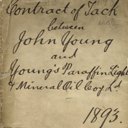 Contract of Tack
between
John Young
and
Young's Paraffin Light
& Mineral Oil Coy Ld
1893.